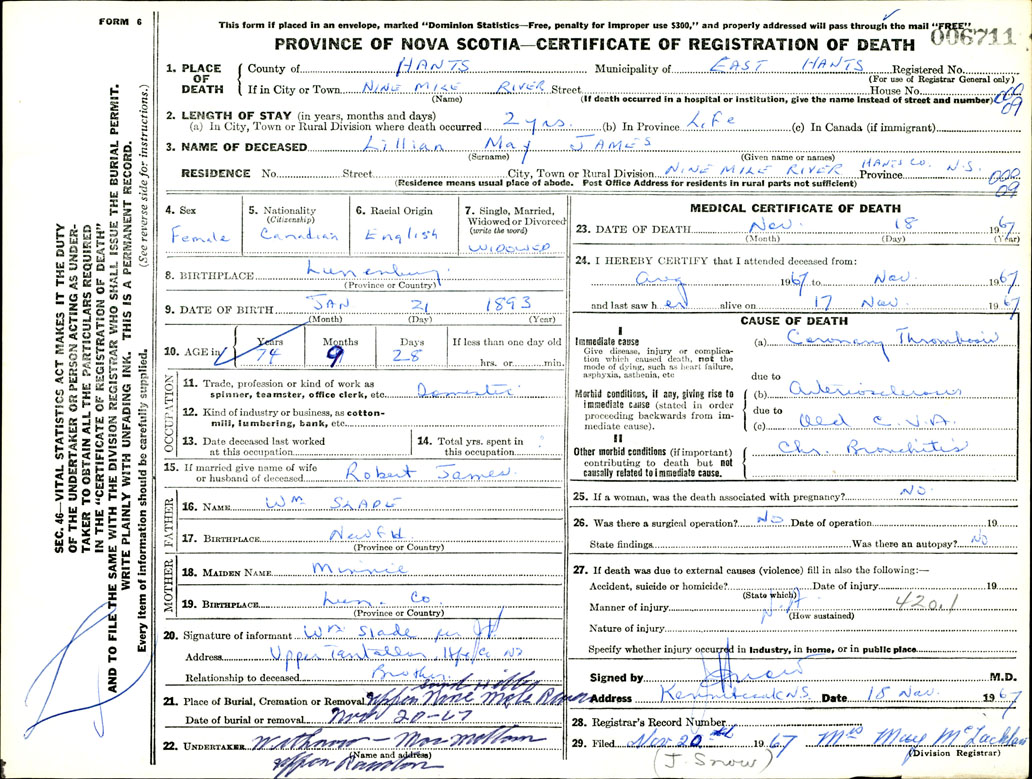 FORM 6
This form if placed in an envelope, marked "Dominion Statistics—Free, penalty for improper use $300," and properly addressed will pass through the mail "FREE"
PROVINCE OF NOVA SCOTIA—CERTIFICATE OF REGISTRATION OF DEATH 006711
SEC. 46—VITAL STATISTICS ACT MAKES IT THE DUTY
OF THE UNDERTAKER OR PERSON ACTING AS UNDER-
TAKER TO OBTAIN ALL THE PARTICULARS REQUIRED
IN THE "CERTIFICATE OF REGISTRATION OF DEATH"
AND TO FILE THE SAME WITH THE DIVISION REGISTRAR WHO SHALL ISSUE THE BURIAL PERMIT.
WRITE PLAINLY WITH UNFADING INK. THIS IS A PERMANENT RECORD.
Every item of information should be carefully supplied. (See reverse side for instructions.)
1. PLACE OF DEATH
County of HANTS Municipality of EAST HANTS Registered No.
(For use of Registrar General only)
If in City or Town NINE MILE RIVER Street House No.
(Name) (If death occurred in a hospital or institution, give the name instead of street and number)
2. LENGTH OF STAY (in years, months and days)
(a) In City, Town or Rural Division where death occurred 2 yrs. (b) In Province Life (c) In Canada (if immigrant)
3. NAME OF DECEASED Lillian May JAMES
(Surname) (Given name or names)
RESIDENCE No. Street City, Town or Rural Division NINE MILE RIVER HANTS CO. Province N.S.
(Residence means usual place of abode. Post Office Address for residents in rural parts not sufficient)
4. Sex Female
5. Nationality (Citizenship) Canadian
6. Racial Origin English
7. Single, Married, Widowed or Divorced (write the word) WIDOWED
8. BIRTHPLACE Lunenburg
(Province or Country)
9. DATE OF BIRTH JAN 21 1893
(Month) (Day) (Year)
10. AGE in Years 74 Months 9 Days 28 If less than one day old hrs. or min.
OCCUPATION
11. Trade, profession or kind of work as spinner, teamster, office clerk, etc. Domestic
12. Kind of industry or business, as cotton-mill, lumbering, bank, etc.
13. Date deceased last worked at this occupation
14. Total yrs. spent in this occupation ?
15. If married give name of wife or husband of deceased Robert James
FATHER
16. NAME Wm SLADE
17. BIRTHPLACE Newfld
(Province or Country)
MOTHER
18. MAIDEN NAME Minnie
19. BIRTHPLACE Lun. Co
(Province or Country)
20. Signature of informant Wm Slade
Address Upper Tantallon, Hfx Co NS
Relationship to deceased Brother
21. Place of Burial, Cremation or Removal Upper Nine Mile River
Date of burial or removal Nov 20-67
22. UNDERTAKER
(Name and address)
Upper Rawdon
MEDICAL CERTIFICATE OF DEATH
23. DATE OF DEATH Nov. 18 1967
(Month) (Day) (Year)
24. I HEREBY CERTIFY that I attended deceased from:
Aug 1967 to Nov. 1967
and last saw her alive on 17 Nov. 1967
CAUSE OF DEATH
I
Immediate cause
Give disease, injury or complication which caused death, not the mode of dying, such as heart failure, asphyxia, asthenia, etc
(a) Coronary Thrombosis
due to
Morbid conditions, if any, giving rise to immediate cause (stated in order proceeding backwards from immediate cause).
(b) Arteriosclerosis
due to
(c) Old C.V.A.
II
Other morbid conditions (if important) contributing to death but not causally related to immediate cause.
Chr. Bronchitis
25. If a woman, was the death associated with pregnancy? NO.
26. Was there a surgical operation? NO Date of operation 19
State findings Was there an autopsy? NO
27. If death was due to external causes (violence) fill in also the following:—
Accident, suicide or homicide? Date of injury 19
(State which)
Manner of injury 420.1
(How sustained)
Nature of injury
Specify whether injury occurred in industry, in home, or in public place
Signed by M.D.
Address Kennetcook N.S. Date 18 Nov. 1967
28. Registrar's Record Number
29. Filed Nov 20th 1967 Mrs May McLachlan
(J. Snow) (Division Registrar)